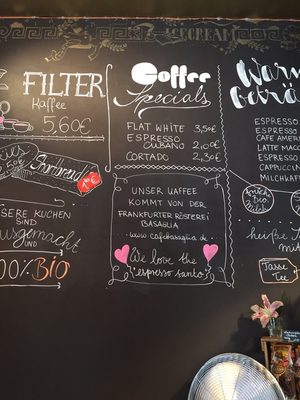 ICECREAM
FILTER
Kaffee
5,60€
Shortbread
1€
UNSERE KUCHEN
SIND
HAUSGEMACHT
UND
100% BIO
Coffee
Specials
FLAT WHITE 3,50€
ESPRESSO
CUBANO 2,10€
CORTADO 2,30€
UNSER KAFFEE
KOMMT VON DER
FRANKFURTER RÖSTEREI
BASAGLIA
www.cafebasaglia.de
We love the
"espresso santo"
Warm
geträ
ESPRESSO
ESPRESSO
CAFE AMERI
LATTE MACC
CAPPUCC
MILCHKAFF
heiße
milch
Tasse
Tee